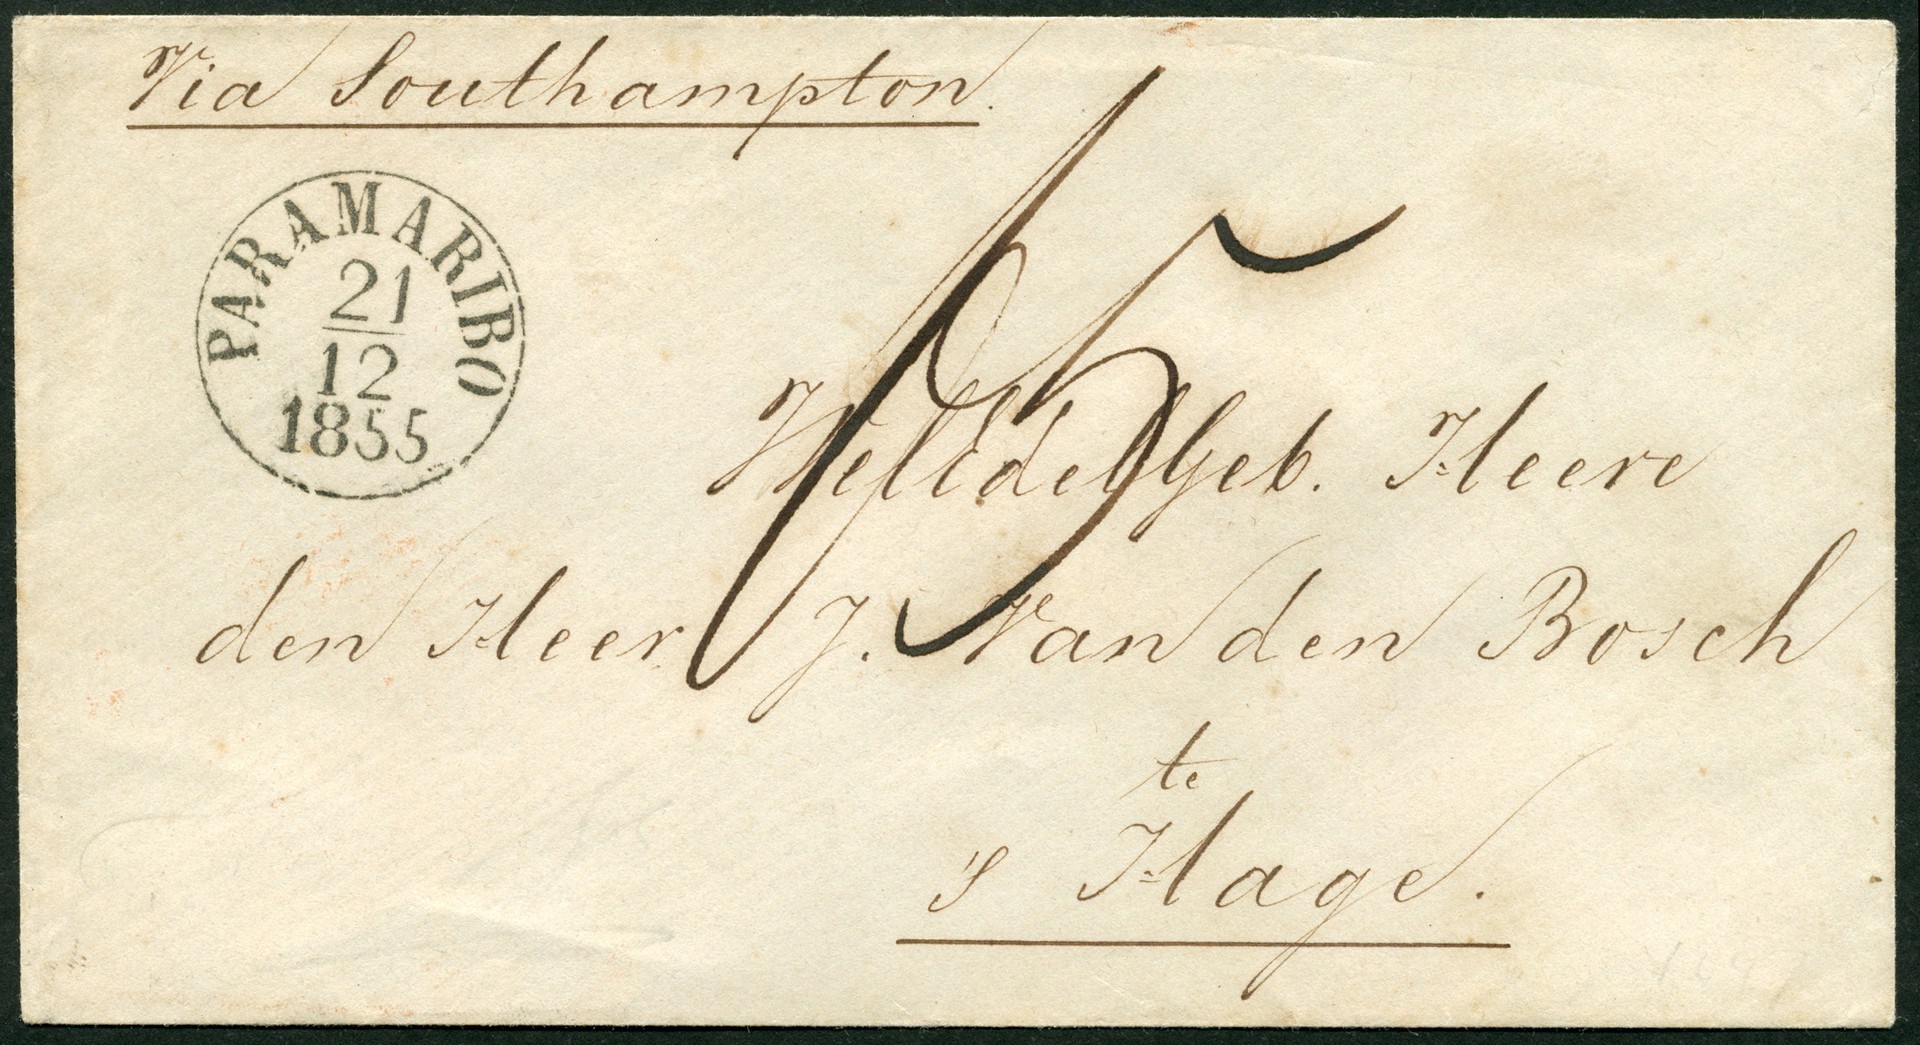 Via Southampton.
PARAMARIBO
21
12
1855
65
WelEdelGeb. Heere
den Heer J. Van den Bosch
te
's Hage.